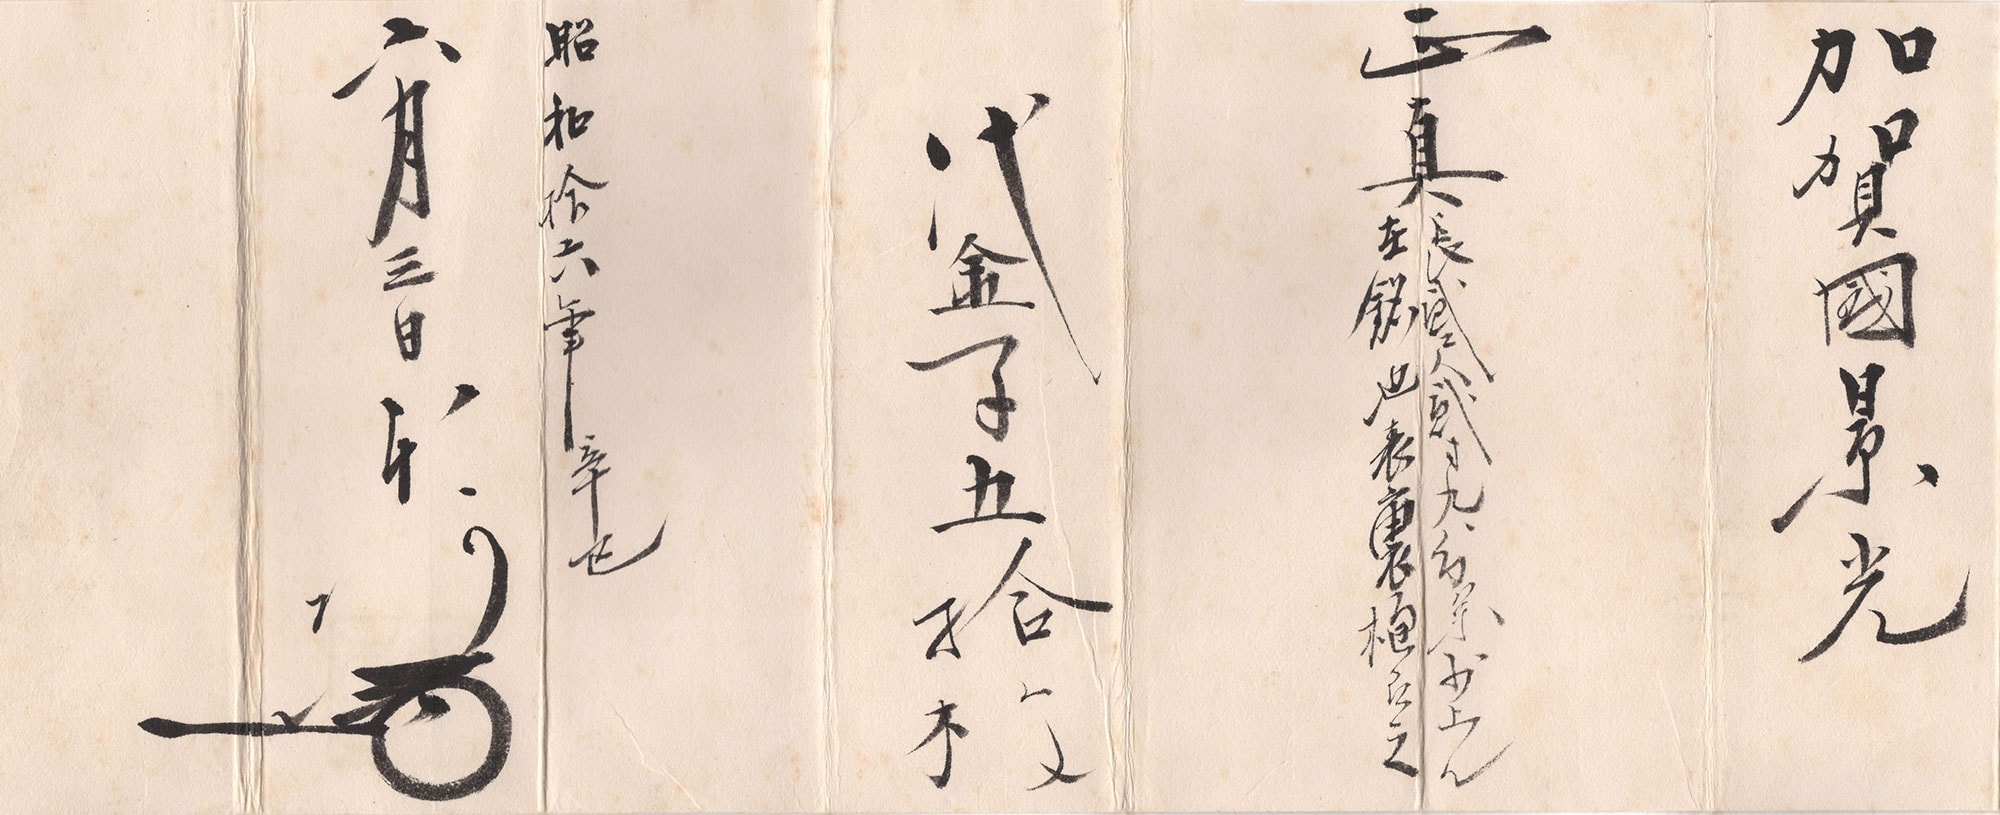 加賀國景光
正真
長貳尺貳寸九分半
在銘也表裏樋有之
代金子五拾枚
昭和拾六年
辛巳
六月三日